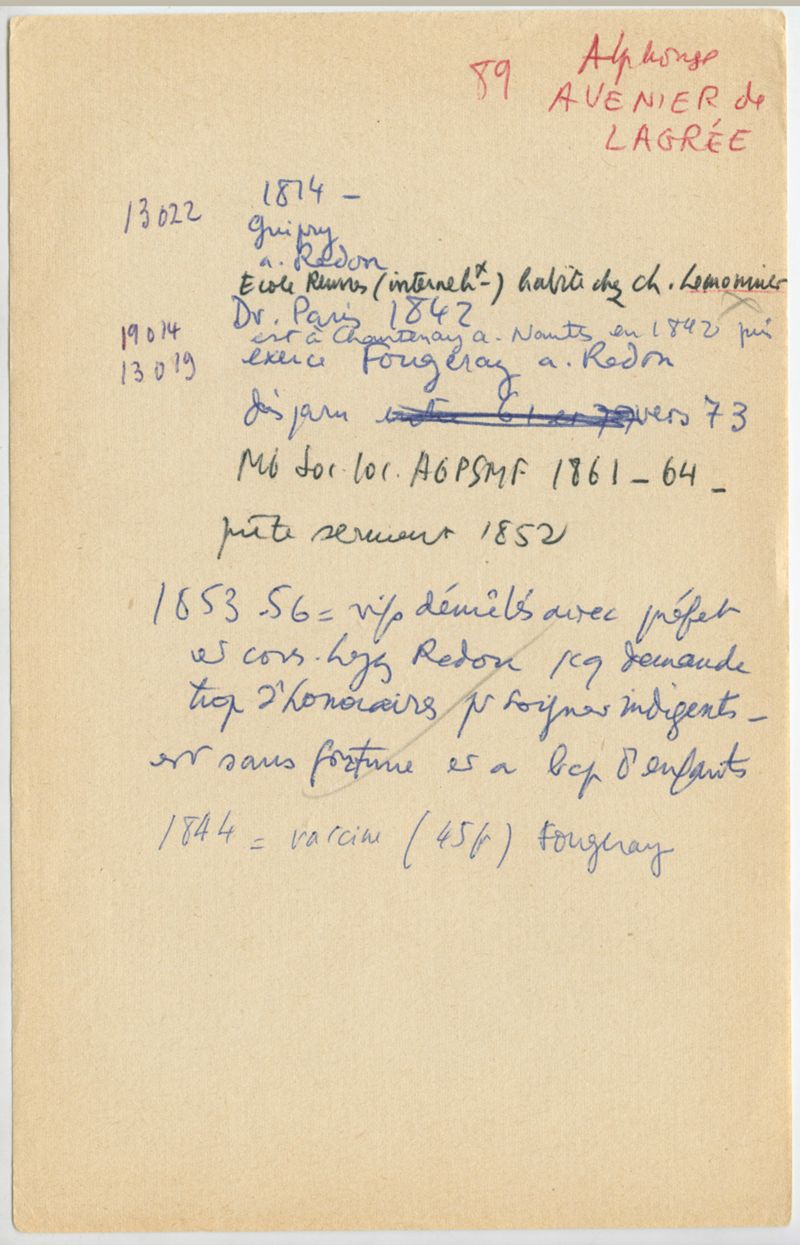 89 Alphonse
AVENIER de
LAGRÉE
13022 1814 –
Guipry
a. Redon
Ecole Rennes (interne hx –) habite chez Ch. Lemonnier
Dr. Paris 1842
19014 est à Chantenay a. Nantes en 1842 puis
13019 exerce Fougeray a. Redon
disparu entre 61 et 77 vers 73
Mb Soc. loc. AGPSMF 1861 – 64 –
prête serment 1852
1853.56 = démêlés avec préfet
et cons. hyg Redon pcq demande
trop d'honoraires pr soigner indigents –
est sans fortune et a bcp d'enfants
1844 = vaccine (45fr) Fougeray